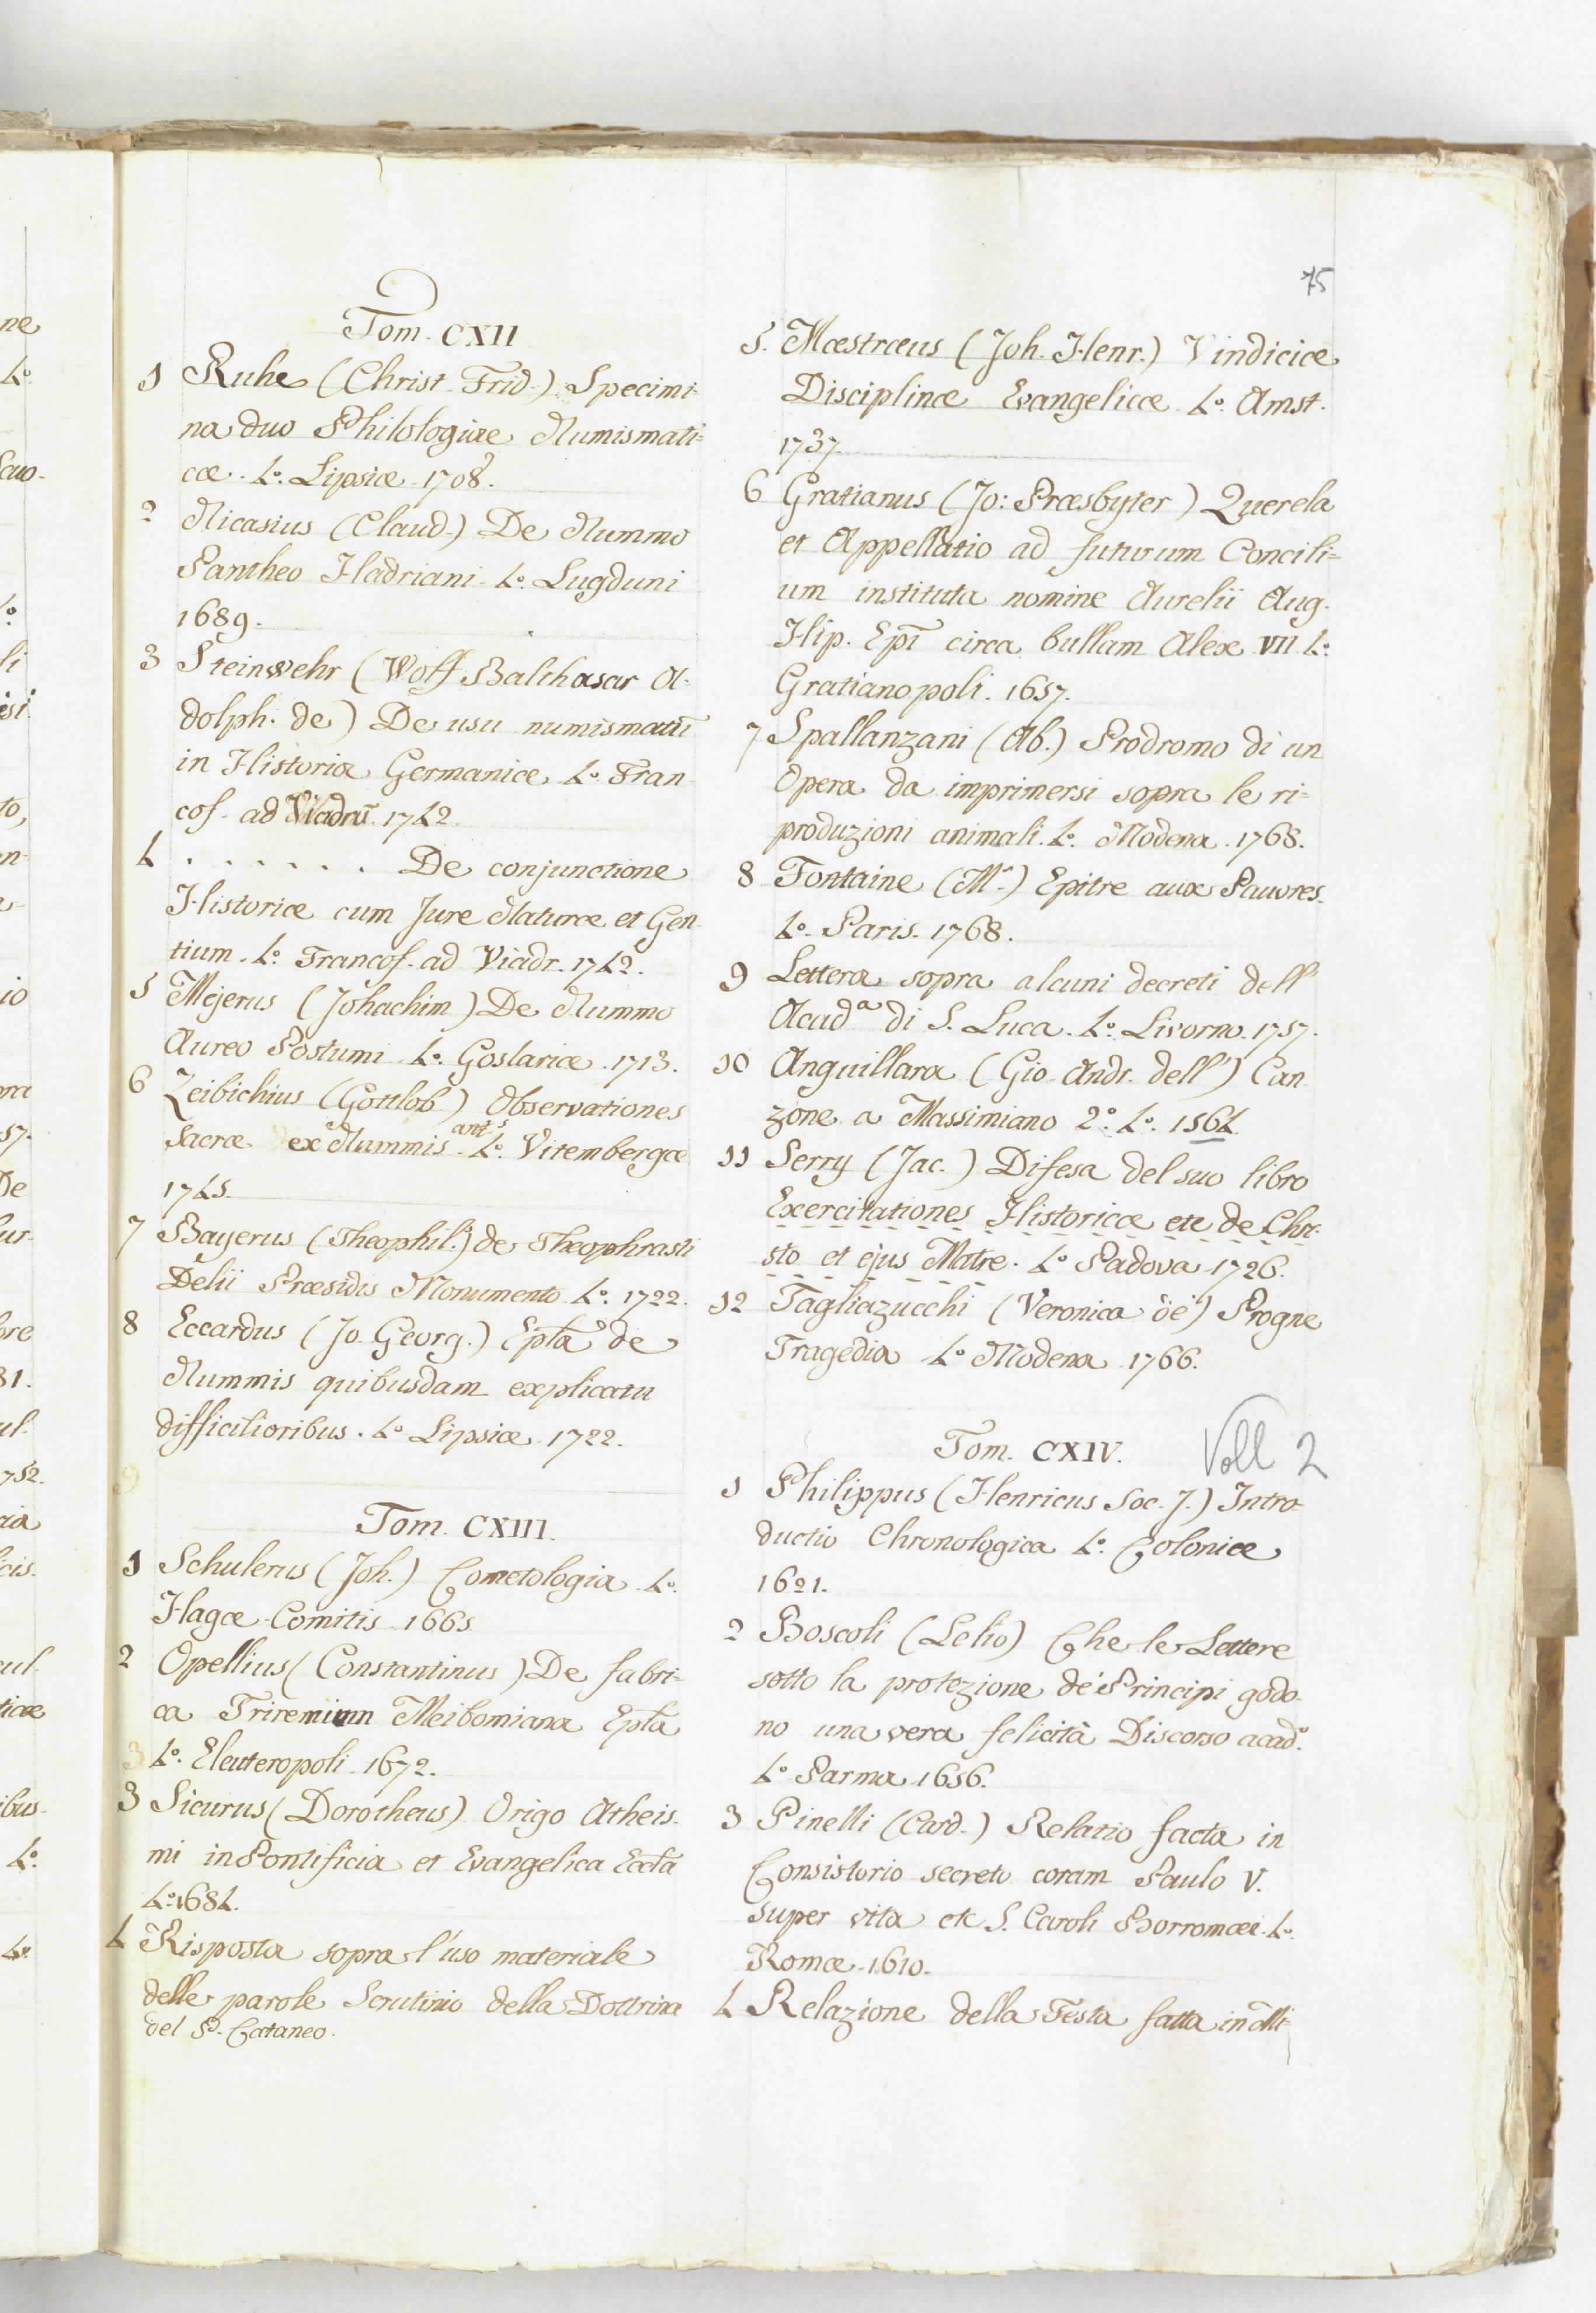 75
Tom. CXII
1 Ruhe (Christ. Frid.) Specimi-
na duo Philologiae Numismati=
cæ. 4º. Lipsiæ. 1708.
2 Nicasius (Claud.) De Nummo
Pantheo Hadriani. 4º. Lugduni
1689.
3 Steinwehr (Wolf Balthasar A-
dolph. de) De usu numismatū
in Historia Germaniæ. 4º. Fran
cof. ad Viadrū. 1742.
4 . . . . . . . De conjunctione
Historiæ cum Jure Naturæ et Gen
tium. 4º. Francof. ad Viadr. 1742.
5 Mejerus (Johachim) De Nummo
Aureo Postumi. 4º. Goslariæ. 1713.
6 Zeibichius (Gottlob.) Observationes
Sacræ ex Nummis antˢ. 4º. Vitembergæ
1745.
7 Bayerus (Theophil.) de Theophrasti
Delii Præsidis Monumento. 4º. 1722.
8 Eccardus (Jo. Georg.) Epl̃a de
Nummis quibusdam explicatu
difficilioribus. 4º. Lipsiæ. 1722.
Tom. CXIII.
1 Schulerus (Joh.) Cometologia. 4º.
Hagæ-Comitis. 1665.
2 Opellius (Constantinus) De fabri=
ca Triremium Meibomiana Epl̃a
4º. Eleuteropoli. 1672.
3 Sicurus (Dorotheus) Origo Atheis-
mi in Pontificia et Evangelica Eccl̃a
4º. 1684.
4 Risposta sopra l'uso materiale
delle parole Scrutinio della Dottrina
del P. Cataneo.
5. Mæstræus (Joh. Henr.) Vindiciæ
Disciplinæ Evangelicæ. 4º. Amst.
1737.
6 Gratianus (Jo: Præsbyter) Querela
et Appellatio ad futurum Concili=
um instituta nomine Aurelii Aug.
Hip. Epī circa bullam Alex. VII. 4º.
Gratianopoli. 1657.
7 Spallanzani (Ab.) Prodromo di un
Opera da imprimersi sopra le ri=
produzioni animali. 4º. Modena. 1768.
8 Fontaine (Mʳ.) Epitre aux Pauvres.
4º. Paris. 1768.
9 Lettera sopra alcuni decreti dell'
Acadª di S. Luca. 4º. Livorno. 1757.
10 Anguillara (Gio. Andr. dell') Can
zone a Massimiano 2º. 4º. 1564.
11 Serry (Jac.) Difesa del suo libro
Exercitationes Historicæ etc de Chri-
sto et ejus Matre. 4º. Padova. 1726.
12 Tagliazucchi (Veronica de') Progne
Tragedia. 4º. Modena. 1766.
Tom. CXIV. Voll 2
1 Philippus (Henricus Soc. J.) Intro-
ductio Chronologica. 4º. Coloniæ
1621.
2 Boscoli (Lelio) Che le Lettere
sotto la protezione de' Principi godo-
no una vera felicità Discorso acadº.
4º. Parma. 1656.
3 Pinelli (Card.) Relatio facta in
Consistorio secreto coram Paulo V.
super vita etc S. Caroli Borromæi. 4º.
Romæ. 1610.
4 Relazione della Festa fatta in Mi-